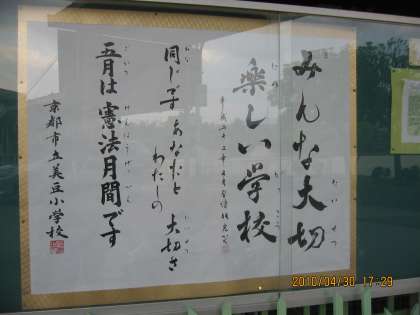 みんな大切
楽しい学校
同じです あなたと
わたしの
大切さ
五月は 憲法月間です
京都市立美豆小学校
2010/04/30 17:29